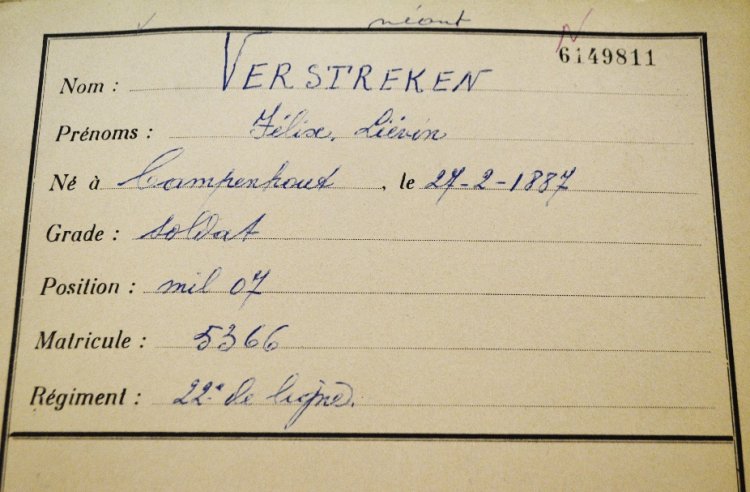 néant
6149811
Nom : VERSTREKEN
Prénoms : Félix, Liévin
Né à Campenhout, le 27-2-1887
Grade : soldat
Position : mil 07
Matricule : 5366
Régiment : 22e de ligne.